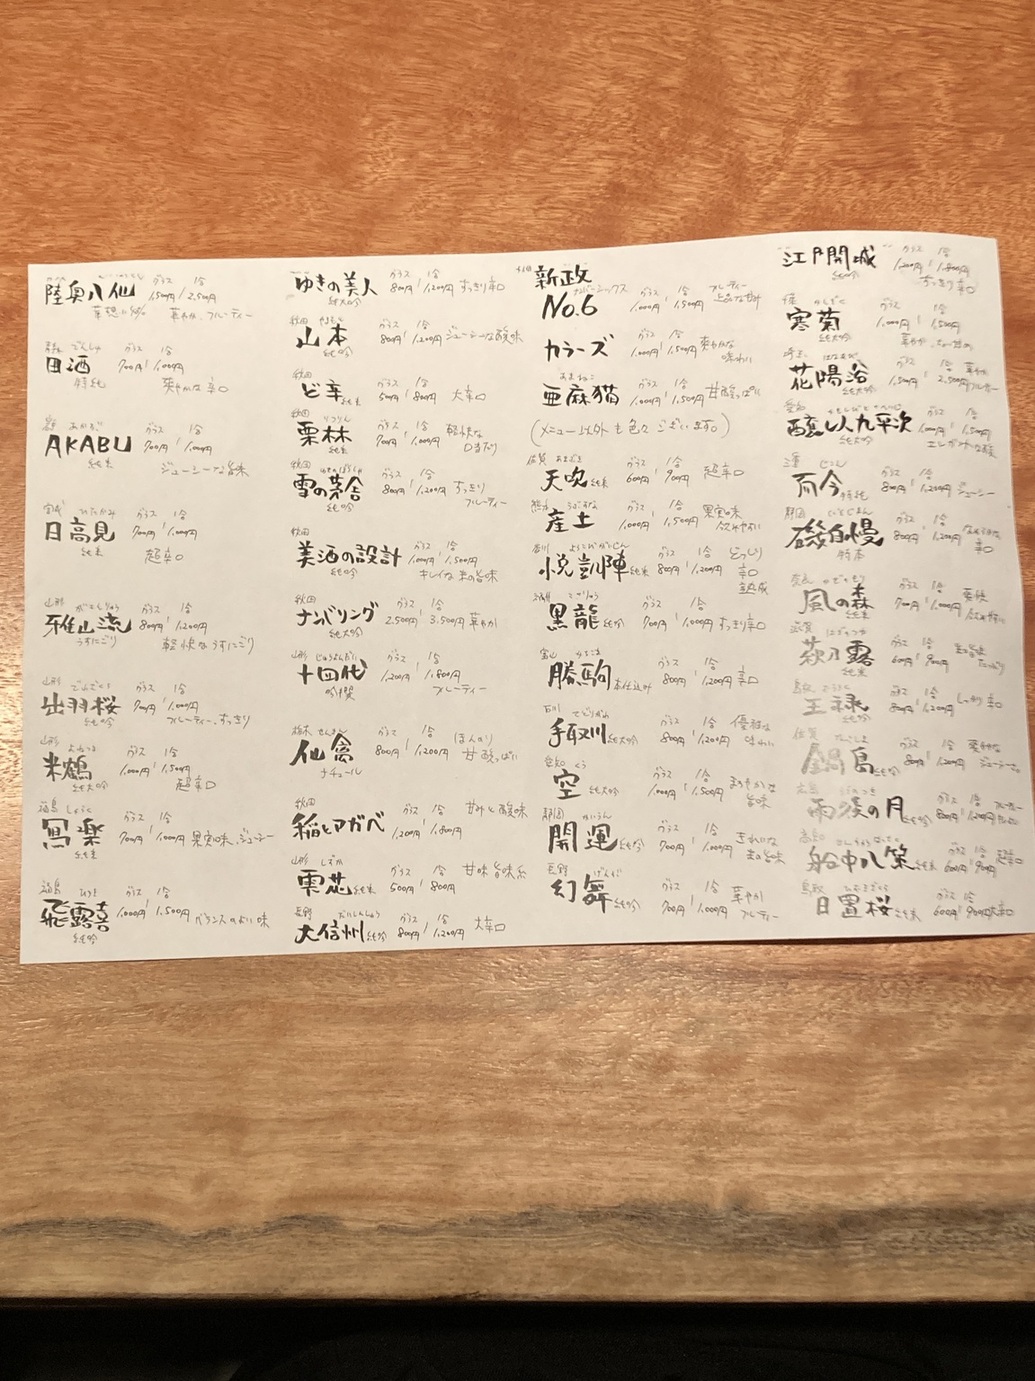 陸奥八仙 グラス 1合 1,500円/2,500円
華やか、フルーティー
田酒 グラス 1合 700円/1,000円
特純 爽やかな辛口
AKABU グラス 1合 700円/1,000円
純米 ジューシーな旨味
宮城 ひたかみ
日高見 グラス 1合 700円/1,000円
純米 超辛口
山形 がさんりゅう
雅山流 グラス 1合 800円/1,200円
うすにごり 軽快なうすにごり
山形 でわざくら
出羽桜 グラス 1合 700円/1,000円
純吟 フルーティー、すっきり
山形 よねつる
米鶴 グラス 1合 1,000円/1,500円
純大吟 超辛口
福島 しゃらく
寫楽 グラス 1合 700円/1,000円 果実味、ジューシー
純米
福島 ひろき
飛露喜 グラス 1合 1,000円/1,500円 バランスのよい味
純吟
ゆきの美人 グラス 1合 800円/1,200円 すっきり辛口
純大吟
秋田 やまもと
山本 グラス 1合 800円/1,200円 ジューシーな酸味
純吟
秋田
ど辛 純米 グラス 1合 500円/800円 大辛口
秋田 りつりん
栗林 グラス 1合 700円/1,000円 軽快な口当たり
純米
秋田 ゆきのぼうしゃ
雪の茅舎 グラス 1合 800円/1,200円 すっきりフルーティー
純吟
秋田
美酒の設計 グラス 1合 1,000円/1,500円
純吟 キレイな米の旨味
秋田
ナンバリング グラス 1合 2,500円/3,500円 華やか
純大吟
山形 じゅうよんだい
十四代 グラス 1合 1,200円/1,800円
吟撰 フルーティー
栃木 せんきん
仙禽 グラス 1合 800円/1,200円 ほんのり甘酸っぱい
ナチュール
秋田
稲とアガベ グラス 1合 1,200円/1,800円 甘みと酸味
山形
雫花 純米 グラス 1合 500円/800円 甘味旨味系
長野 だいしんしゅう
大信州 純吟 グラス 1合 800円/1,200円 大辛口
新政
No.6 グラス 1合 1,000円/1,500円
カラーズ グラス 1合 1,000円/1,500円 爽やかな味わい
あまねこ
亜麻猫 グラス 1合 1,000円/1,500円 甘酸っぱい
(メニュー以外も色々ございます。)
佐賀 あまぶき
天吹 純米 グラス 1合 600円/900円 超辛口
熊本 うぶすな
産土 グラス 1合 1,000円/1,500円 果実味 飲みやすい
香川 よろこびがいじん
悦凱陣 純米 グラス 1合 800円/1,200円 どっしり辛口 熟成
こくりゅう
黒龍 純吟 グラス 1合 700円/1,000円 すっきり辛口
富山 かちこま
勝駒 本仕込み グラス 1合 800円/1,200円 辛口
石川 てどりがわ
手取川 純大吟 グラス 1合 800円/1,200円 優雅な味わい
愛知 くう
空 純大吟 グラス 1合 1,000円/1,500円 まろやかな旨味
静岡 かいうん
開運 純吟 グラス 1合 700円/1,000円 きれいな米の旨味
長野 げんぶ
幻舞 純吟 グラス 1合 700円/1,000円 華やかフルーティー
江戸開城 グラス 1合 1,200円/1,800円
純吟 すっきり辛口
寒菊 グラス 1合 1,000円/1,500円
純大吟
埼玉 はなあび
花陽浴 グラス 1合 1,500円/2,500円
純大吟
愛知 かもしびとくへいじ
醸し人九平次 グラス 1合 1,000円/1,500円
純大吟
三重 じこん
而今 特純 グラス 1合 800円/1,200円 ジューシー
静岡 いそじまん
磯自慢 グラス 1合 800円/1,200円
特本
奈良 かぜのもり
風の森 グラス 1合 700円/1,000円
純米
滋賀 はぎのつゆ
萩乃露 グラス 1合 600円/900円
純米
王禄 グラス 1合 800円/1,200円 しっかり辛口
純吟
佐賀 なべしま
鍋島 純吟 グラス 1合 800円/1,200円 爽やかなジューシー
広島 うごのつき
雨後の月 純吟 グラス 1合 800円/1,200円
高知 せんちゅうはっさく
船中八策 純米 グラス 1合 600円/900円 超辛口
鳥取 ひおきざくら
日置桜 純米 グラス 1合 600円/900円 大辛口